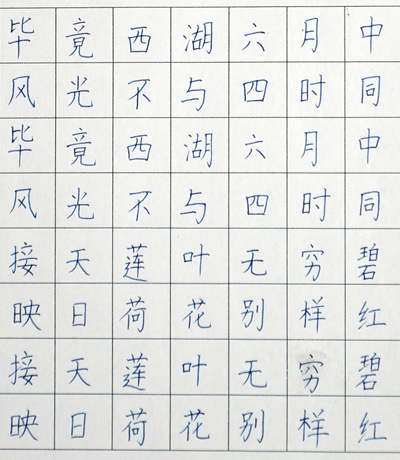 毕竟西湖六月中
风光不与四时同
毕竟西湖六月中
风光不与四时同
接天莲叶无穷碧
映日荷花别样红
接天莲叶无穷碧
映日荷花别样红